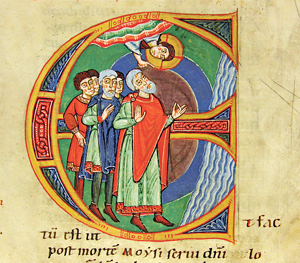 Et fac
tū est ut
post mortē Moysi serui dn̄i lo